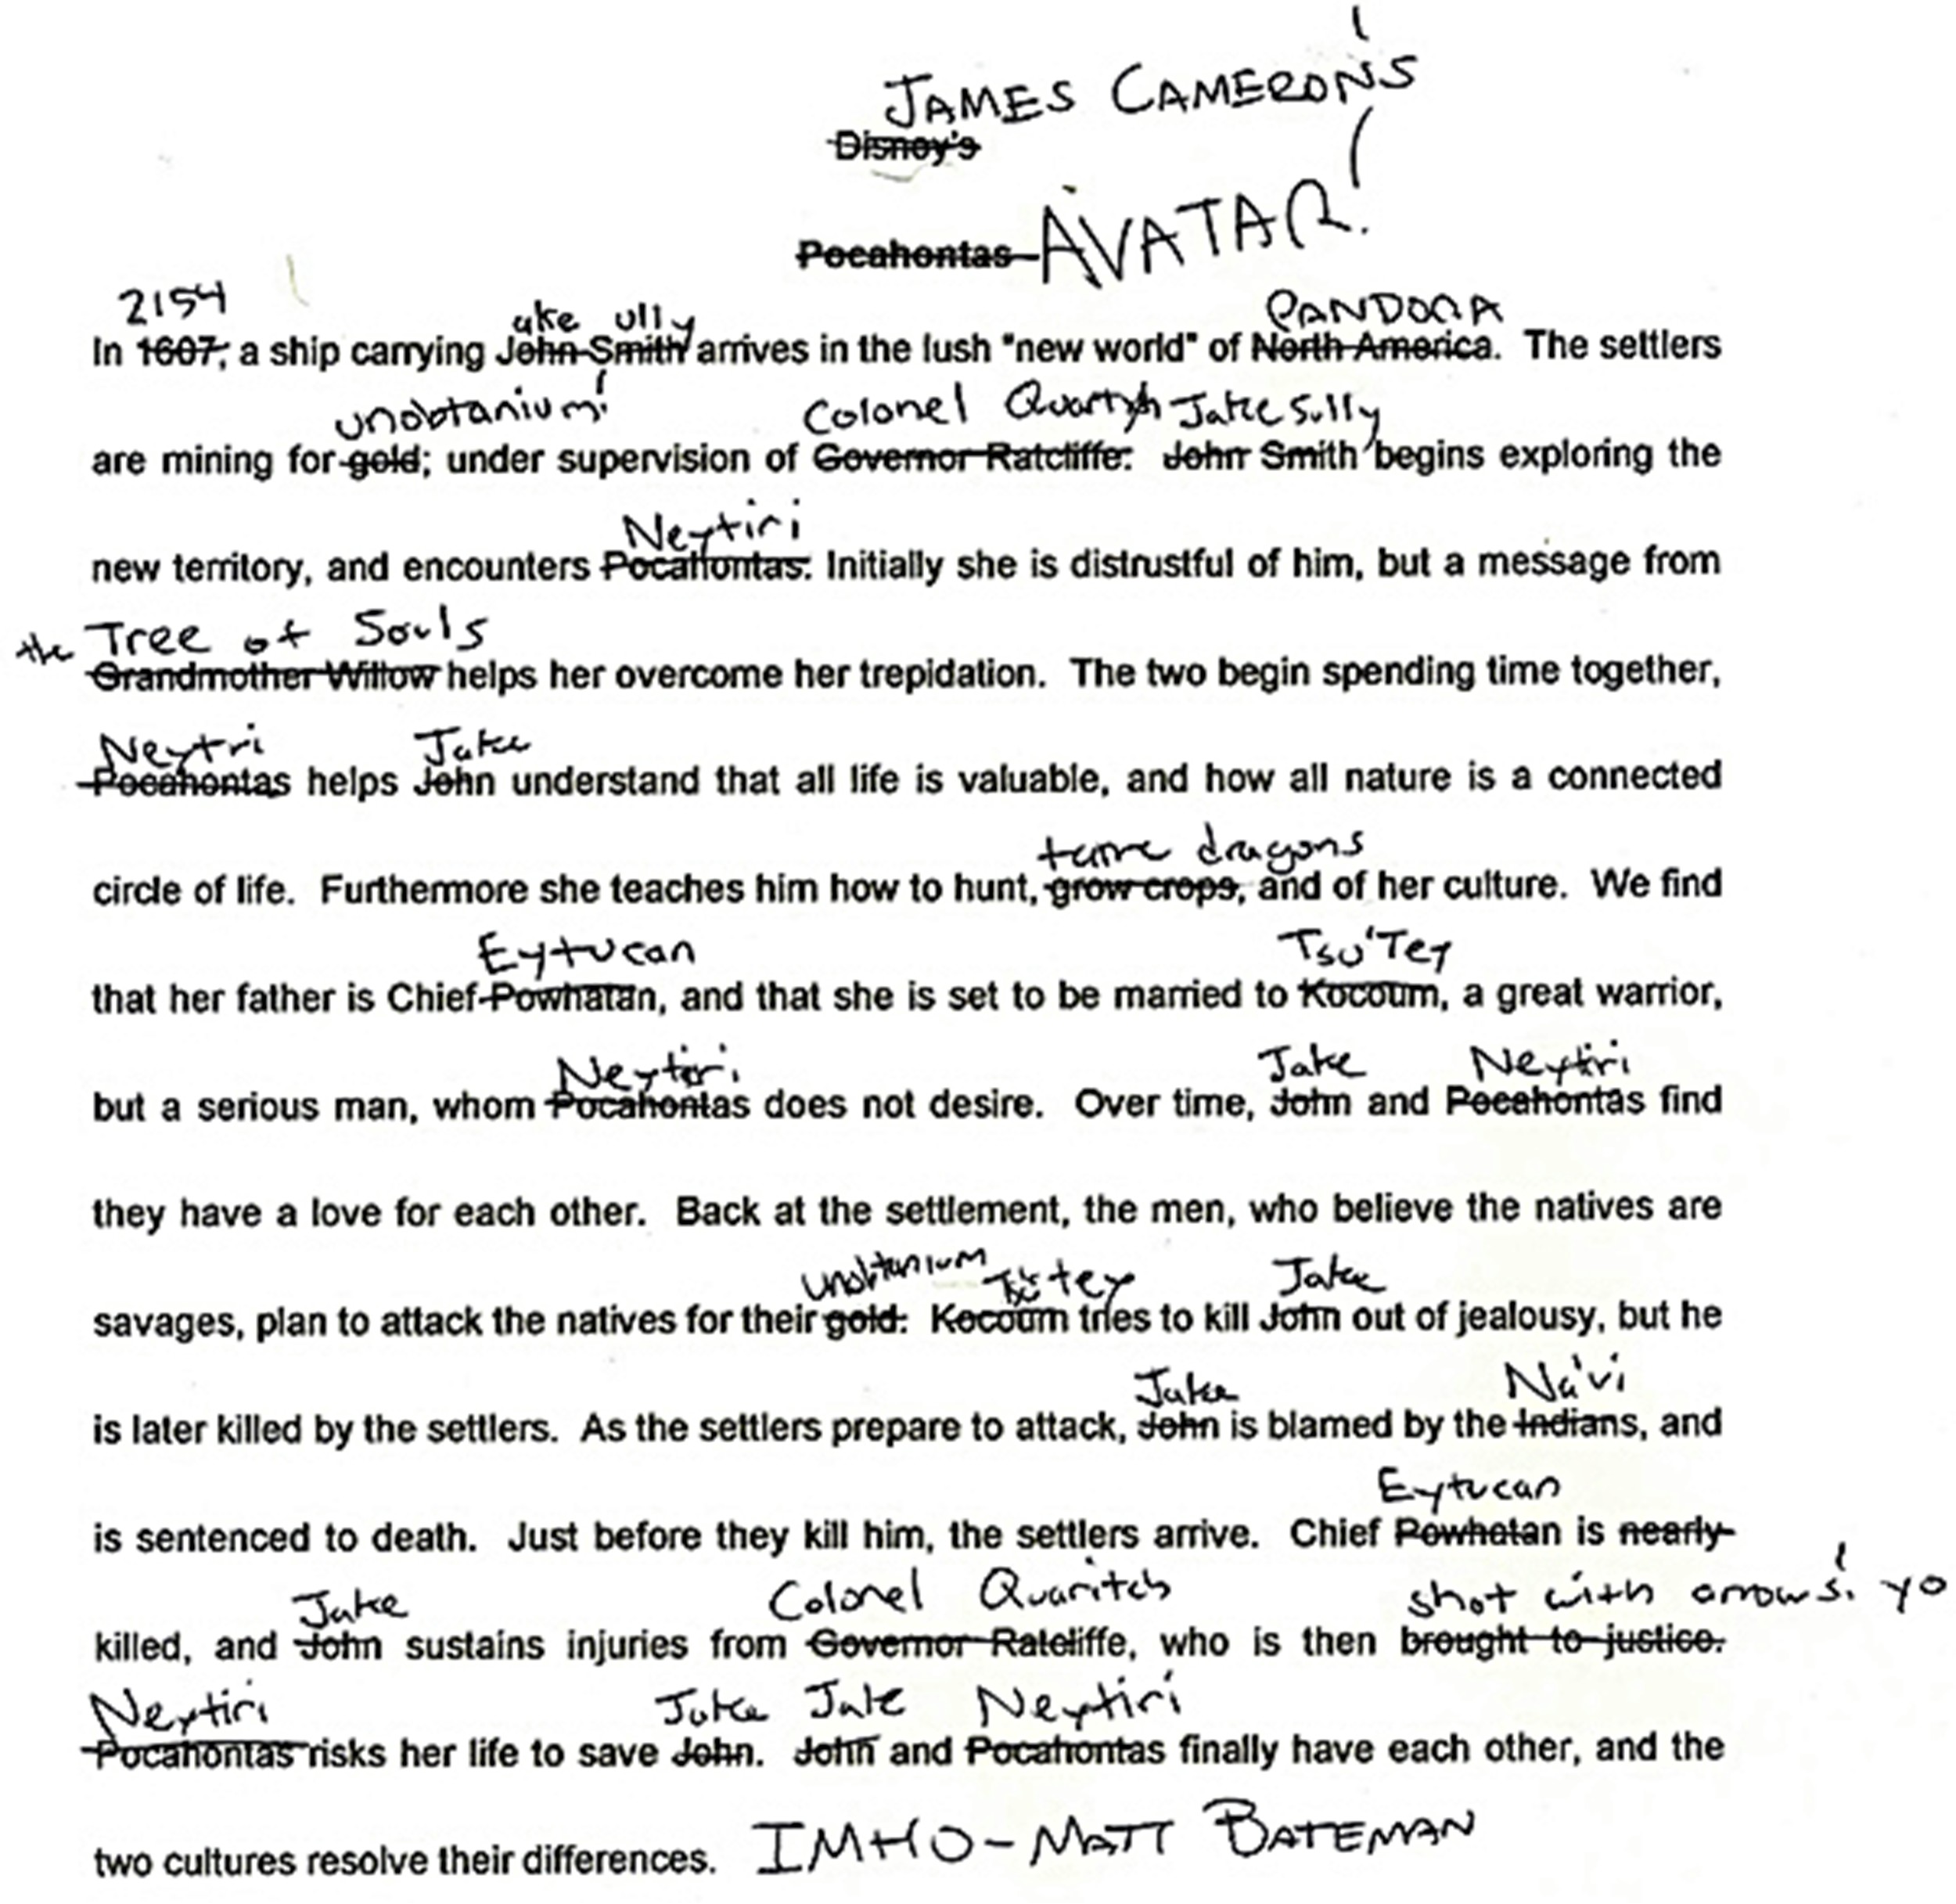 JAMES CAMERON'S
Disney's
Pocahontas AVATAR!
2154 ake ully PANDORA
In 1607, a ship carrying John Smith arrives in the lush "new world" of North America. The settlers
unobtanium! Colonel Quaritch Jake Sully
are mining for gold; under supervision of Governor Ratcliffe. John Smith begins exploring the
Neytiri
new territory, and encounters Pocahontas. Initially she is distrustful of him, but a message from
the Tree of Souls
Grandmother Willow helps her overcome her trepidation. The two begin spending time together,
Neytri Jake
Pocahontas helps John understand that all life is valuable, and how all nature is a connected
tame dragons
circle of life. Furthermore she teaches him how to hunt, grow crops, and of her culture. We find
Eytucan Tsu'Tey
that her father is Chief Powhatan, and that she is set to be married to Kocoum, a great warrior,
Neytiri Jake Neytiri
but a serious man, whom Pocahontas does not desire. Over time, John and Pocahontas find
they have a love for each other. Back at the settlement, the men, who believe the natives are
unobtanium Tsu'tey Jake
savages, plan to attack the natives for their gold. Kocoum tries to kill John out of jealousy, but he
Jake Na'vi
is later killed by the settlers. As the settlers prepare to attack, John is blamed by the Indians, and
Eytucan
is sentenced to death. Just before they kill him, the settlers arrive. Chief Powhatan is nearly
Jake Colonel Quaritch shot with arrows! yo
killed, and John sustains injuries from Governor Ratcliffe, who is then brought to justice.
Neytiri Jake Jake Neytiri
Pocahontas risks her life to save John. John and Pocahontas finally have each other, and the
two cultures resolve their differences. IMHO - MATT BATEMAN